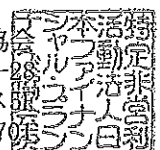 特定非営利
活動法人日
本ファイナン
シャル・プラン
協
-28
70